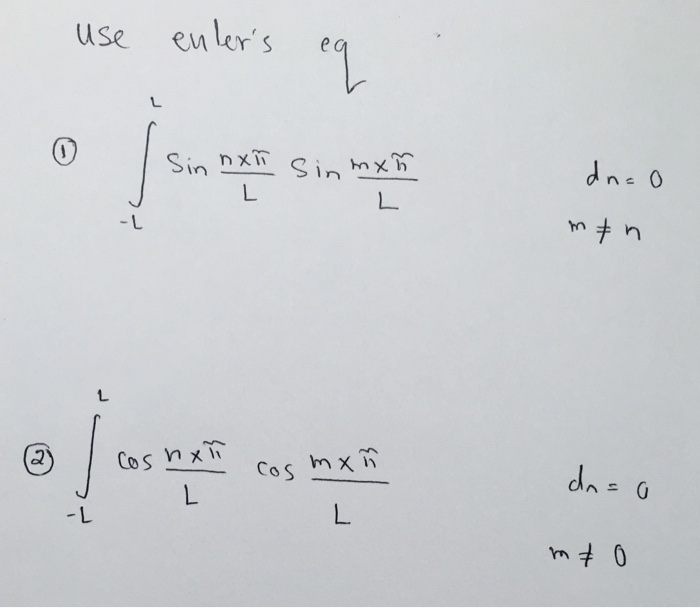 use euler's eq
① ∫_{-L}^{L} sin nxπ/L sin mxπ/L dn = 0
m ≠ n
② ∫_{-L}^{L} cos nxπ/L cos mxπ/L dn = 0
m ≠ 0